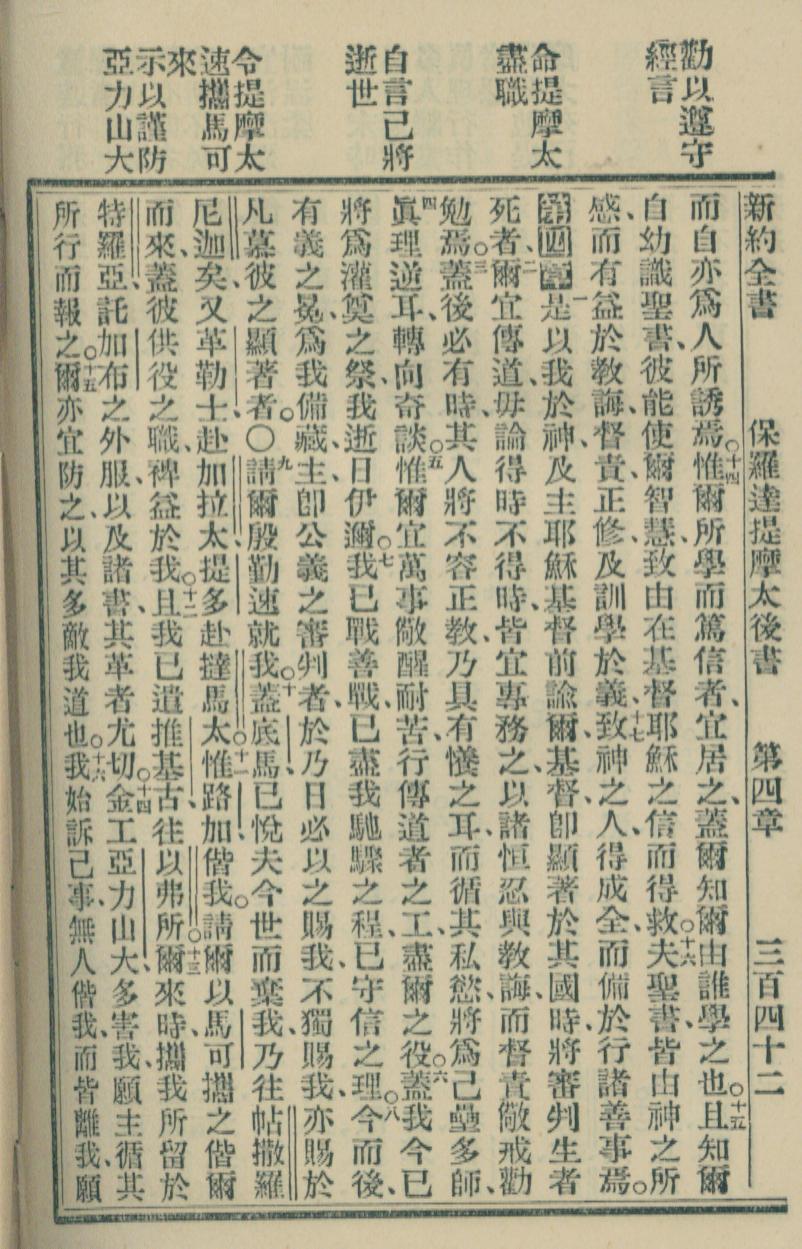 勸以遵守
經言
命提摩太
盡職
自言己將
逝世
令提摩太
速攜馬可
來
示以謹防
亞力山大
新約全書 保羅達提摩太後書 第四章 三百四十二
而自亦爲人所誘焉○十四惟爾所學而篤信者、宜居之、蓋爾知爾由誰學之也○十五且知爾
自幼識聖書、彼能使爾智慧、致由在基督耶穌之信而得救○十六夫聖書、皆由神之所
感、而有益於教誨、督責、正修、及訓學於義、十七致神之人得成全、而備於行諸善事焉○
第四章 一是以我於神、及主耶穌基督前諭爾、基督、卽顯著於其國時、將審判生者
死者、二爾宜傳道、毋論得時不得時、皆宜專務之、以諸恒忍與教誨、而督責儆戒勸
勉焉○三蓋後必有時、其人將不容正教、乃具有懩之耳、而循其私慾、將爲己壘多師、
四眞理逆耳、轉向奇談○五惟爾宜萬事儆醒耐苦、行傳道者之工、盡爾之役○六蓋我今已
將爲灌奠之祭、我逝日伊邇○七我已戰善戰、已盡我馳驟之程、已守信之理○八今而後、
有義之冕、爲我備藏、主卽公義之審判者、於乃日必以之賜我、不獨賜我、亦賜於
凡慕彼之顯著者○〇九請爾殷勤速就我○十蓋底馬已悅夫今世而棄我、乃往帖撒羅
尼迦矣、又革勒士赴加拉太、提多赴撻馬太○十一惟路加偕我○請爾以馬可攜之偕爾
而來、蓋彼供役之職、裨益於我○十二且我已遣推基古往以弗所○十三爾來時、攜我所留於
特羅亞託加布之外服、以及諸書、其革者尤切○十四金工亞力山大、多害我、願主循其
所行而報之○十五爾亦宜防之、以其多敵我道也○十六我始訴己事、無人偕我、而皆離我、願